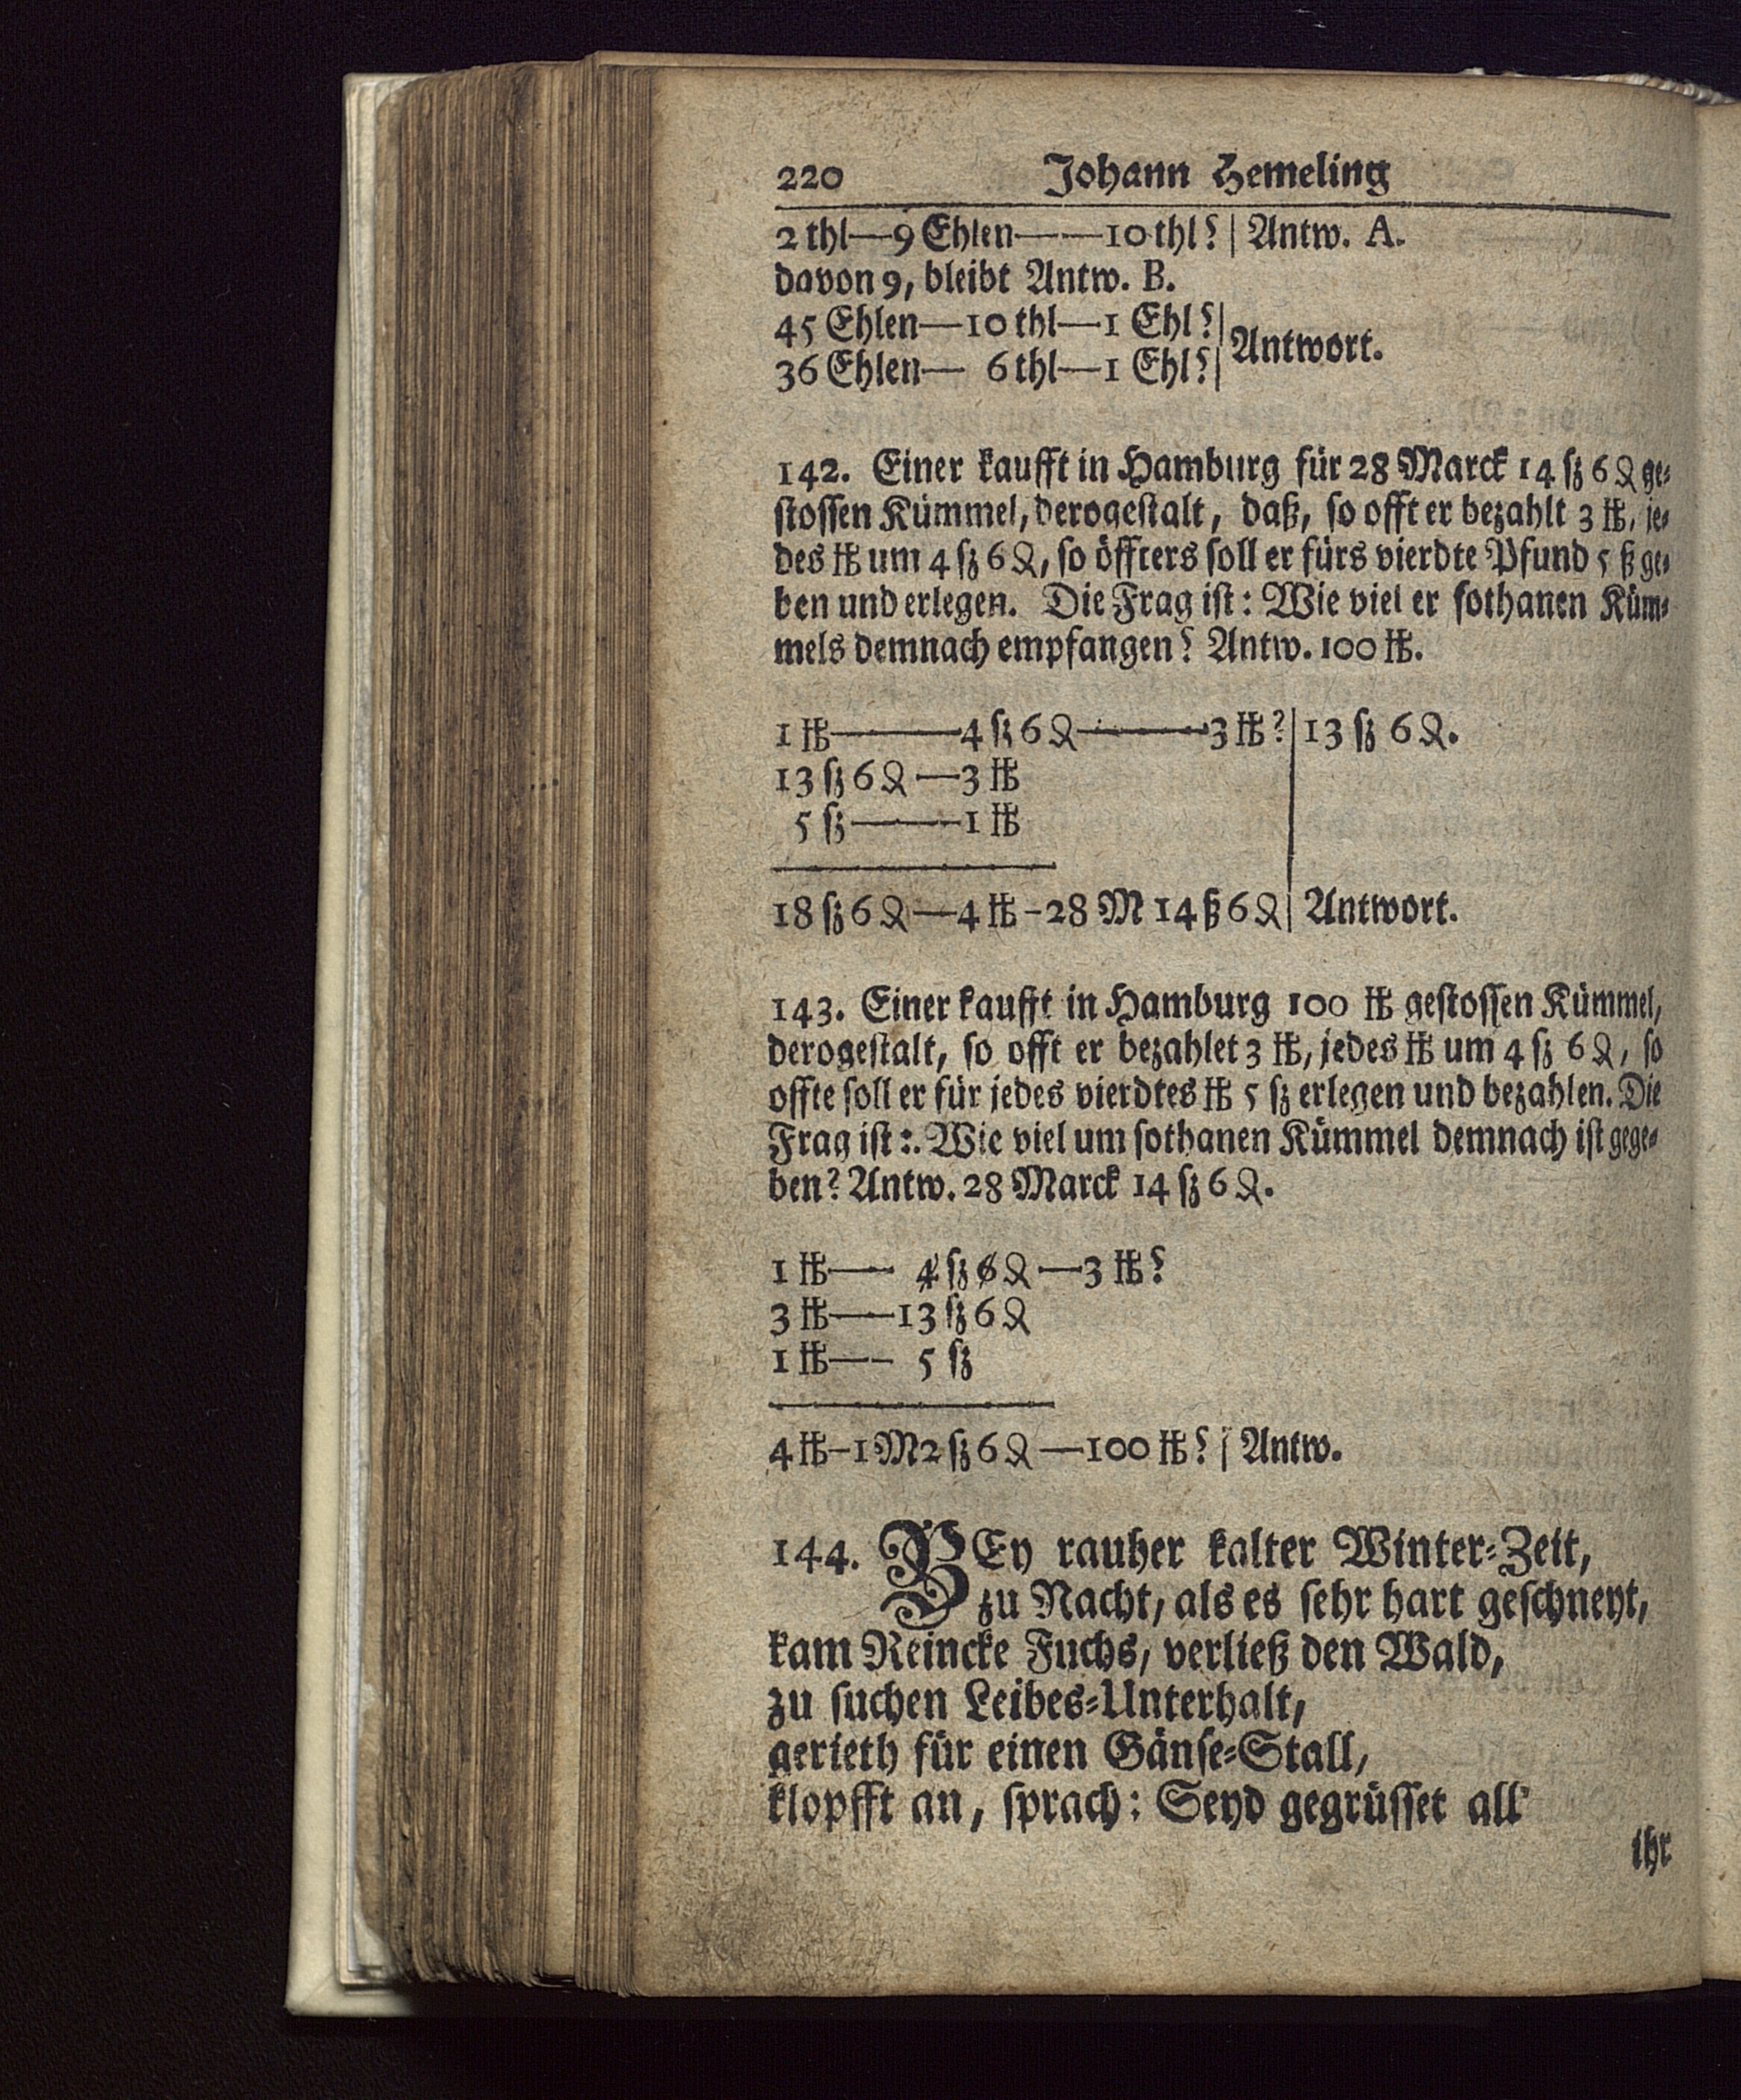 220 Johann Hemeling
2 thl—9 Ehlen——10 thl? | Antw. A.
davon 9, bleibt Antw. B.
45 Ehlen—10 thl—1 Ehl? |
Antwort.
36 Ehlen— 6 thl—1 Ehl? |
142. Einer kaufft in Hamburg für 28 Marck 14 ſz 6 ₰ ge⸗
ſtoſſen Kümmel, derogeſtalt, daß, ſo offt er bezahlt 3 ℔, je⸗
des ℔ um 4 ſz 6 ₰, ſo öffters ſoll er fürs vierdte Pfund 5 ß ge⸗
ben und erlegen. Die Frag iſt: Wie viel er ſothanen Küm⸗
mels demnach empfangen? Antw. 100 ℔.
1 ℔———4 ſz 6 ₰———3 ℔? | 13 ſz 6 ₰.
13 ſz 6 ₰—3 ℔
5 ſz———1 ℔
18 ſz 6 ₰—4 ℔-28 M 14 ß 6 ₰ | Antwort.
143. Einer kaufft in Hamburg 100 ℔ geſtoſſen Kümmel,
derogeſtalt, ſo offt er bezahlet 3 ℔, jedes ℔ um 4 ſz 6 ₰, ſo
offte ſoll er für jedes vierdtes ℔ 5 ſz erlegen und bezahlen. Die
Frag iſt:. Wie viel um ſothanen Kümmel demnach iſt gege⸗
ben? Antw. 28 Marck 14 ſz 6 ₰.
1 ℔—— 4 ſz 6 ₰—3 ℔?
3 ℔——13 ſz 6 ₰
1 ℔—— 5 ſz
4 ℔-1 M 2 ſz 6 ₰—100 ℔? | Antw.
144. BEy rauher kalter Winter⸗Zeit,
zu Nacht, als es ſehr hart geſchneyt,
kam Reincke Fuchs, verließ den Wald,
zu ſuchen Leibes⸗Unterhalt,
gerieth für einen Gänſe⸗Stall,
klopfft an, ſprach: Seyd gegrüſſet all'
ihr